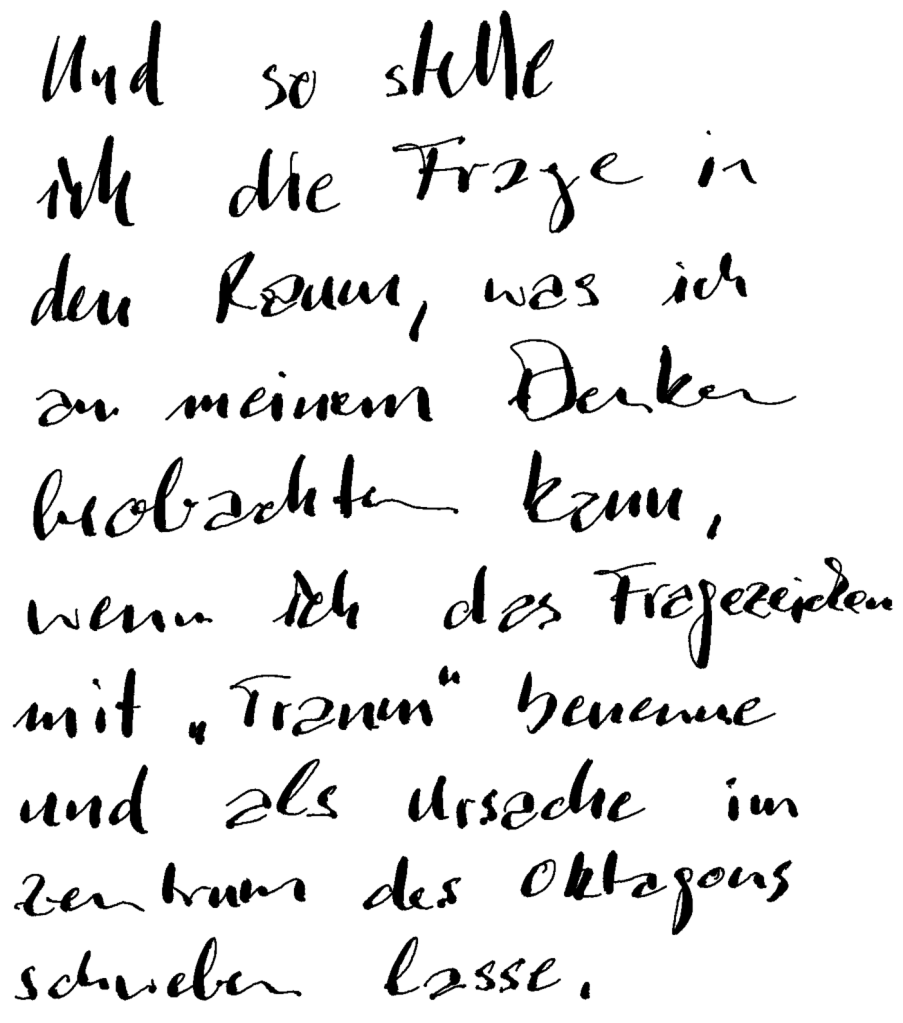 Und so stelle
ich die Frage in
den Raum, was ich
an meinem Denken
beobachten kann,
wenn ich das Fragezeichen
mit „Traum“ benenne
und als Ursache im
Zentrum des Oktagons
schweben lasse.